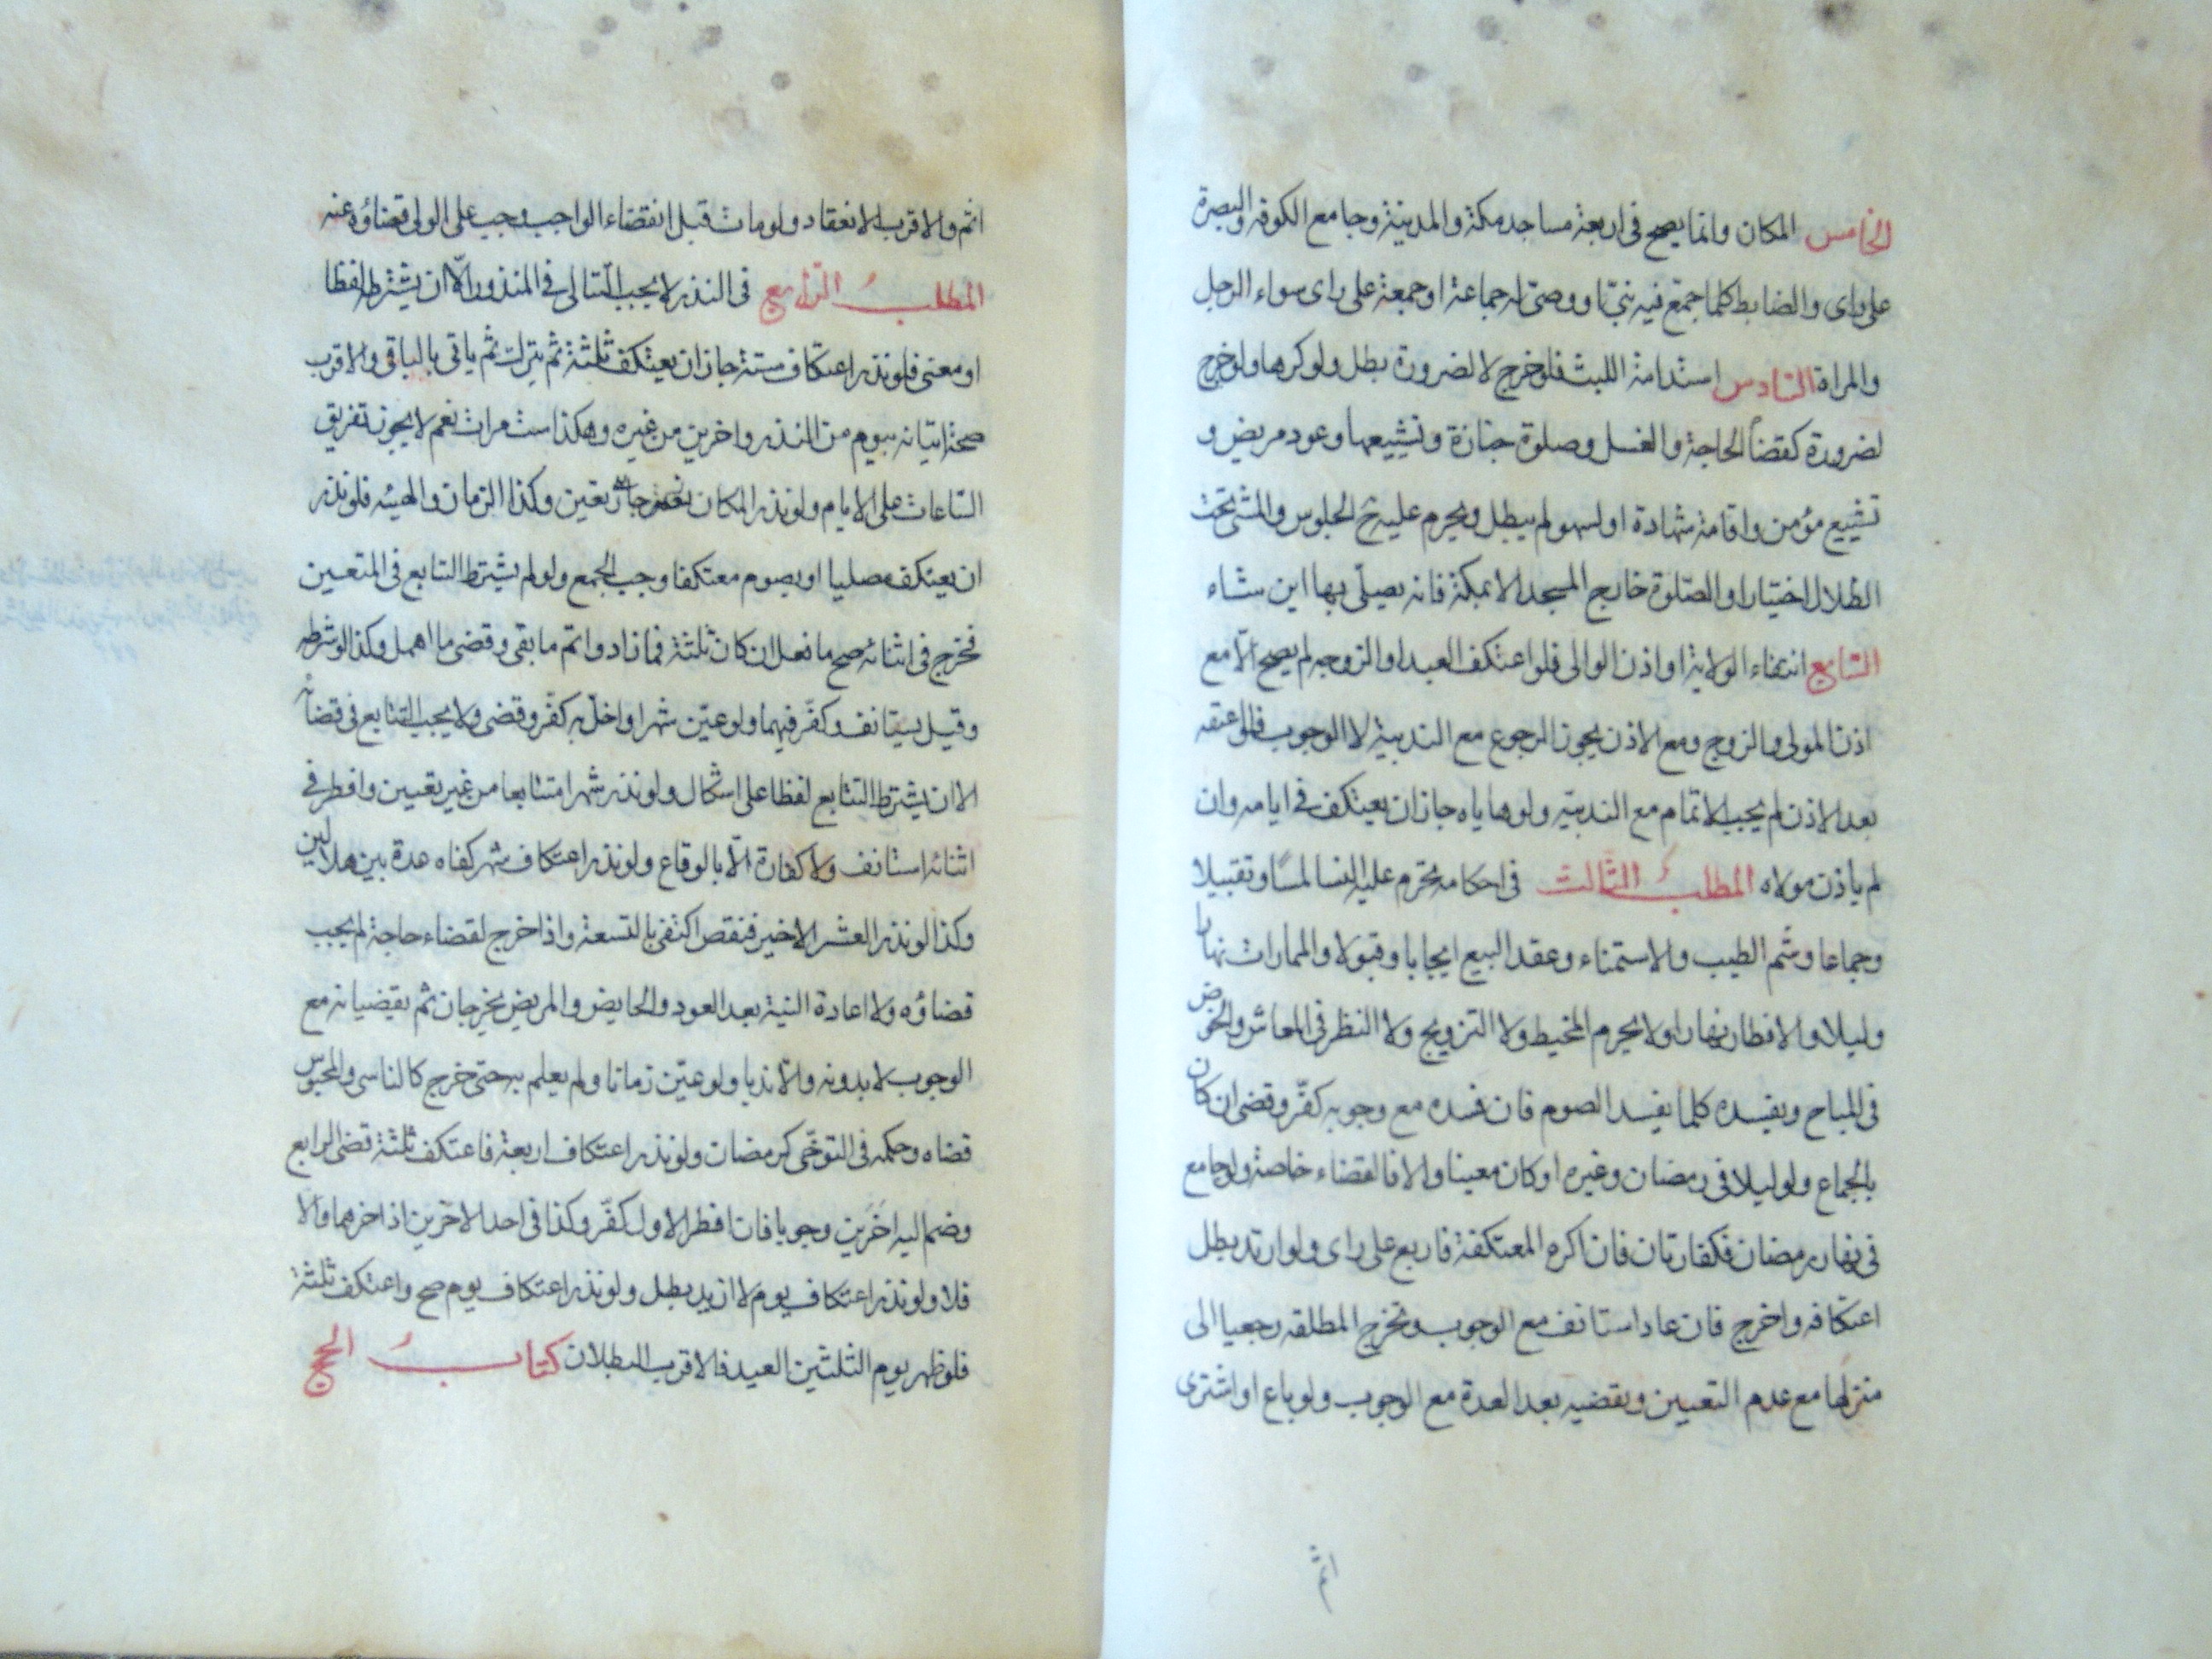 الخامس المكان وانما يصح فى اربعة مساجد مكة والمدينة وجامع الكوفه والبصرة
على راى والضابط كلما جمع فيه نبى او وصى له جماعة او جمعة على راى سواء الرجل
والمراة السادس استدامة اللبث فلو خرج لا لضرورة بطل ولو كرها ولو خرج
لضرورة كقضاء الحاجة والغسل وصلوة جنازة وتشييعها وعود مريض و
تشييع مؤمن واقامة شهادة او لسهو لم يبطل ويحرم عليه ح الجلوس والمشى تحت
الظلال اختيارا والصلوة خارج المسجد الا بمكة فانه يصلى بها اين شاء
السابع انتفاء الولاية او اذن الوالى فلو اعتكف العبد او الزوجه لم يصح الا مع
اذن المولى والزوج ومع الاذن يجوز الرجوع مع الندبية لا الوجوب فلو اعتقه
بعد الاذن لم يجب الاتمام مع الندبيه ولو هاياه جاز ان يعتكف فى ايامه وان
لم ياذن مولاه المطلب الثالث فى احكامه يحرم عليه النسا لمسا وتقبيلا
وجماعا وشم الطيب والاستمناء وعقد البيع ايجابا وقبولا والممارات نهارا
وليلا والافطار نهارا ولا يحرم المخيط ولا التزويج ولا النظر فى المعاش والخوض
فى المباح ويفسده كلما يفسد الصوم فان فسده مع وجوبه كفّر وقضى ان كان
بالجماع ولو ليلا فى رمضان وغيره او كان معينا والا فالقضاء خاصة ولو جامع
فى نهار رمضان فكفارتان فان اكره المعتكفة فاربع على راى ولو ارتد بطل
اعتكافه واخرج فان عاد استانف مع الوجوب وتخرج المطلقه رجعيا الى
منزلها مع عدم التعيين ويقضيه بعد العدة مع الوجوب ولو باع او اشترى
اثم والاقرب الانعقاد ولو مات قبل انقضاء الواجب وجب على الولى قضاؤه عنه
المطلب الرابع فى النذر لا يجب التتالى فى المنذور الّا ان يشترط لفظا
او معنى فلو نذر اعتكاف ستة جاز ان يعتكف ثلثة ثم يترك ثم ياتى بالباقى والاقرب
صحة اتيانه بيوم من النذر واخرين من غيره وهكذا ست مرات نعم لا يجوز تفريق
الساعات على الايام ولو نذر المكان تعين وكذا الزمان والهيئه فلو نذر
ان يعتكف مصليا او يصوم معتكفا وجب الجمع ولو لم يشترط التتابع فى المتعين
فخرج فى اثنائه صح ما فعل ان كان ثلثة فما زاد واتم ما بقى وقضى ما اهمل وكذا لو شرطه
وقيل يستانف وكفّر فيهما ولو عيّن شهرا واخلّ به كفّر وقضى ولا يجب التتابع فى قضائه
الا ان يشترط التتابع لفظا على اشكال ولو نذر شهرا متتابعا من غير تعيين وافطر فى
اثنائه استانف ولا كفارة الّا بالوقاع ولو نذر اعتكاف شهر كفاه عدة بين هلالين
وكذا لو نذر العشر الاخير فنقص اكتفى بالتسعة واذا خرج لقضاء حاجة لم يجب
قضاؤه ولا اعادة النية بعد العود والحايض والمريض يخرجان ثم يقضيانه مع
الوجوب لا بدونه والا ندبا ولو عيّن زمانا ولم يعلم به حتى خرج كالناسى والمحبوس
قضاه وحكمه فى التوخّى كرمضان ولو نذر اعتكاف اربعة فاعتكف ثلثة قضى الرابع
وضم اليه اخَرين وجوبا فان افطر الاول كفّر وكذا فى احد الاخرين اذ اخرهما والا
فلا ولو نذر اعتكاف يوم لا ازيد بطل ولو نذر اعتكاف يوم صح واعتكف ثلثة
فلو ظهر يوم الثلثين العيد فالاقرب البطلان كتابُ الحج